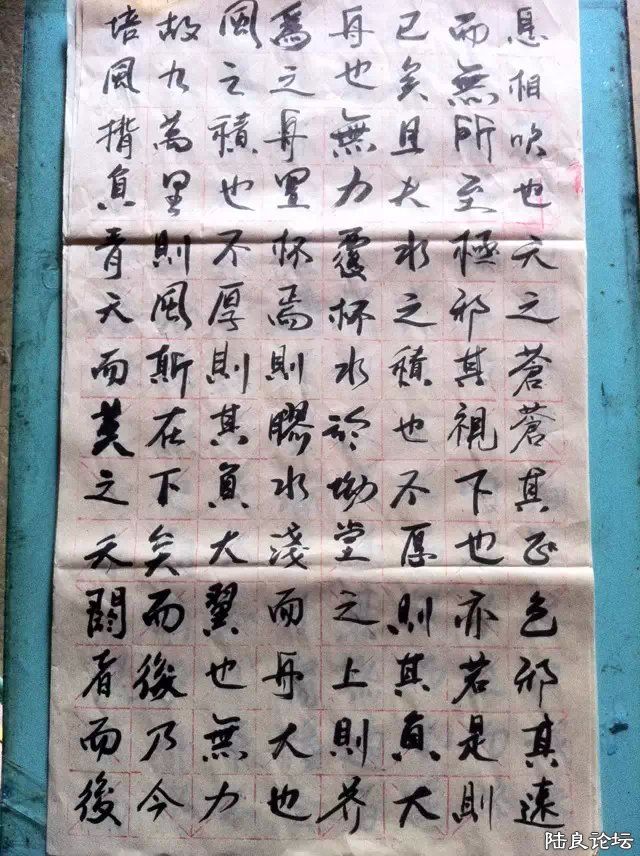 息相吹也天之蒼蒼其正色邪其遠
而無所至極邪其視下也亦若是則
已矣且夫水之積也不厚則其負大
舟也無力覆杯水於坳堂之上則芥
爲之舟置杯焉則膠水淺而舟大也
風之積也不厚則其負大翼也無力
故九萬里則風斯在下矣而後乃今
培風揹負青天而莫之夭閼者而後
陆良论坛